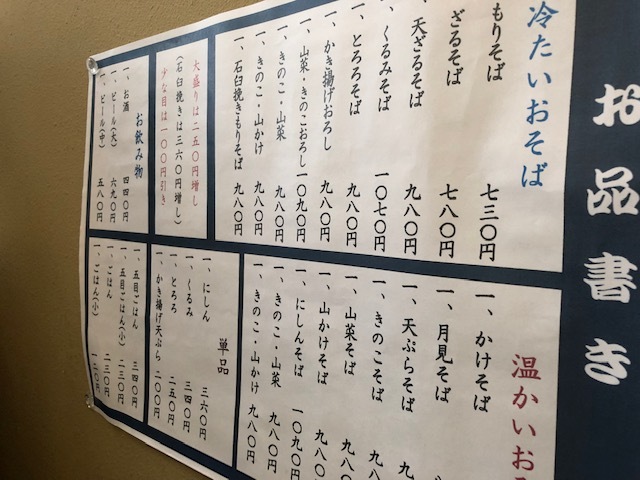 お品書き
冷たいおそば
もりそば 七三〇円
ざるそば 七八〇円
一、天ざるそば 九八〇円
一、くるみそば 一〇七〇円
一、とろろそば 九八〇円
一、かき揚げおろし 九八〇円
一、山菜・きのこおろし 一〇九〇円
一、きのこ・山菜 九八〇円
一、きのこ・山かけ 九八〇円
一、石臼挽きもりそば 九八〇円
大盛りは二五〇円増し
(石臼挽きは三六〇円増し)
少な目は一〇〇円引き
お飲み物
一、お酒 四四〇円
一、ビール(大) 六九〇円
一、ビール(中) 五八〇円
温かいお
一、かけそば
一、月見そば
一、天ぷらそば 九
一、きのこそば 九八
一、山菜そば 九八〇
一、山かけそば 九八〇
一、にしんそば 一〇九〇
一、きのこ・山菜 九八〇円
一、きのこ・山かけ 九八〇円
単品
一、にしん 三六〇円
一、くるみ 三四〇円
一、とろろ 二五〇円
一、かき揚げ天ぷら 二〇〇円
一、五目ごはん 三四〇円
一、五目ごはん(小) 二三〇円
一、ごはん 二三〇円
一、ごはん(小) 一二〇円